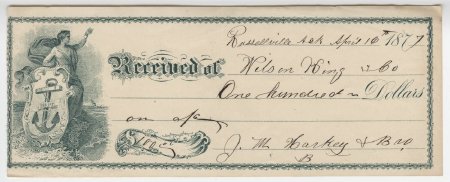 Russellville Ark April 10th 1877
Received of Wilson King & Co
One Hundred Dollars
on a/c
$100.00
J. M. Harkey & Bro
B